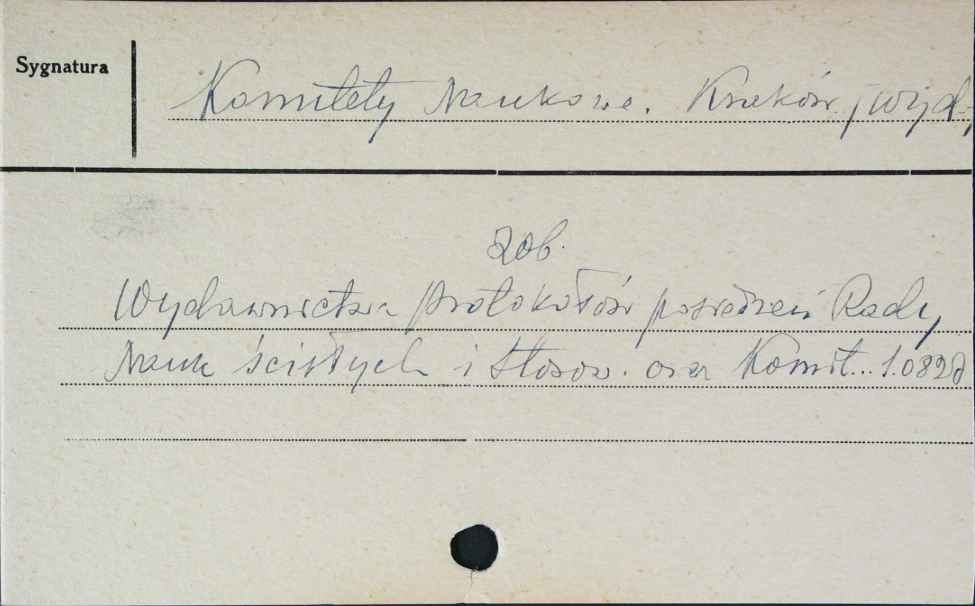 Sygnatura
Komitety Naukowe. Kraków /wyd/
Zob.
Wydawnictwa protokołów posiedzeń Rady
Nauk ścisłych i stosow. oraz Komit... 1.082d